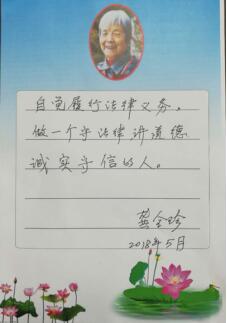 自觉履行法律义务。
做一个守法律讲道德
诚实守信的人。
龚全珍
2018年5月